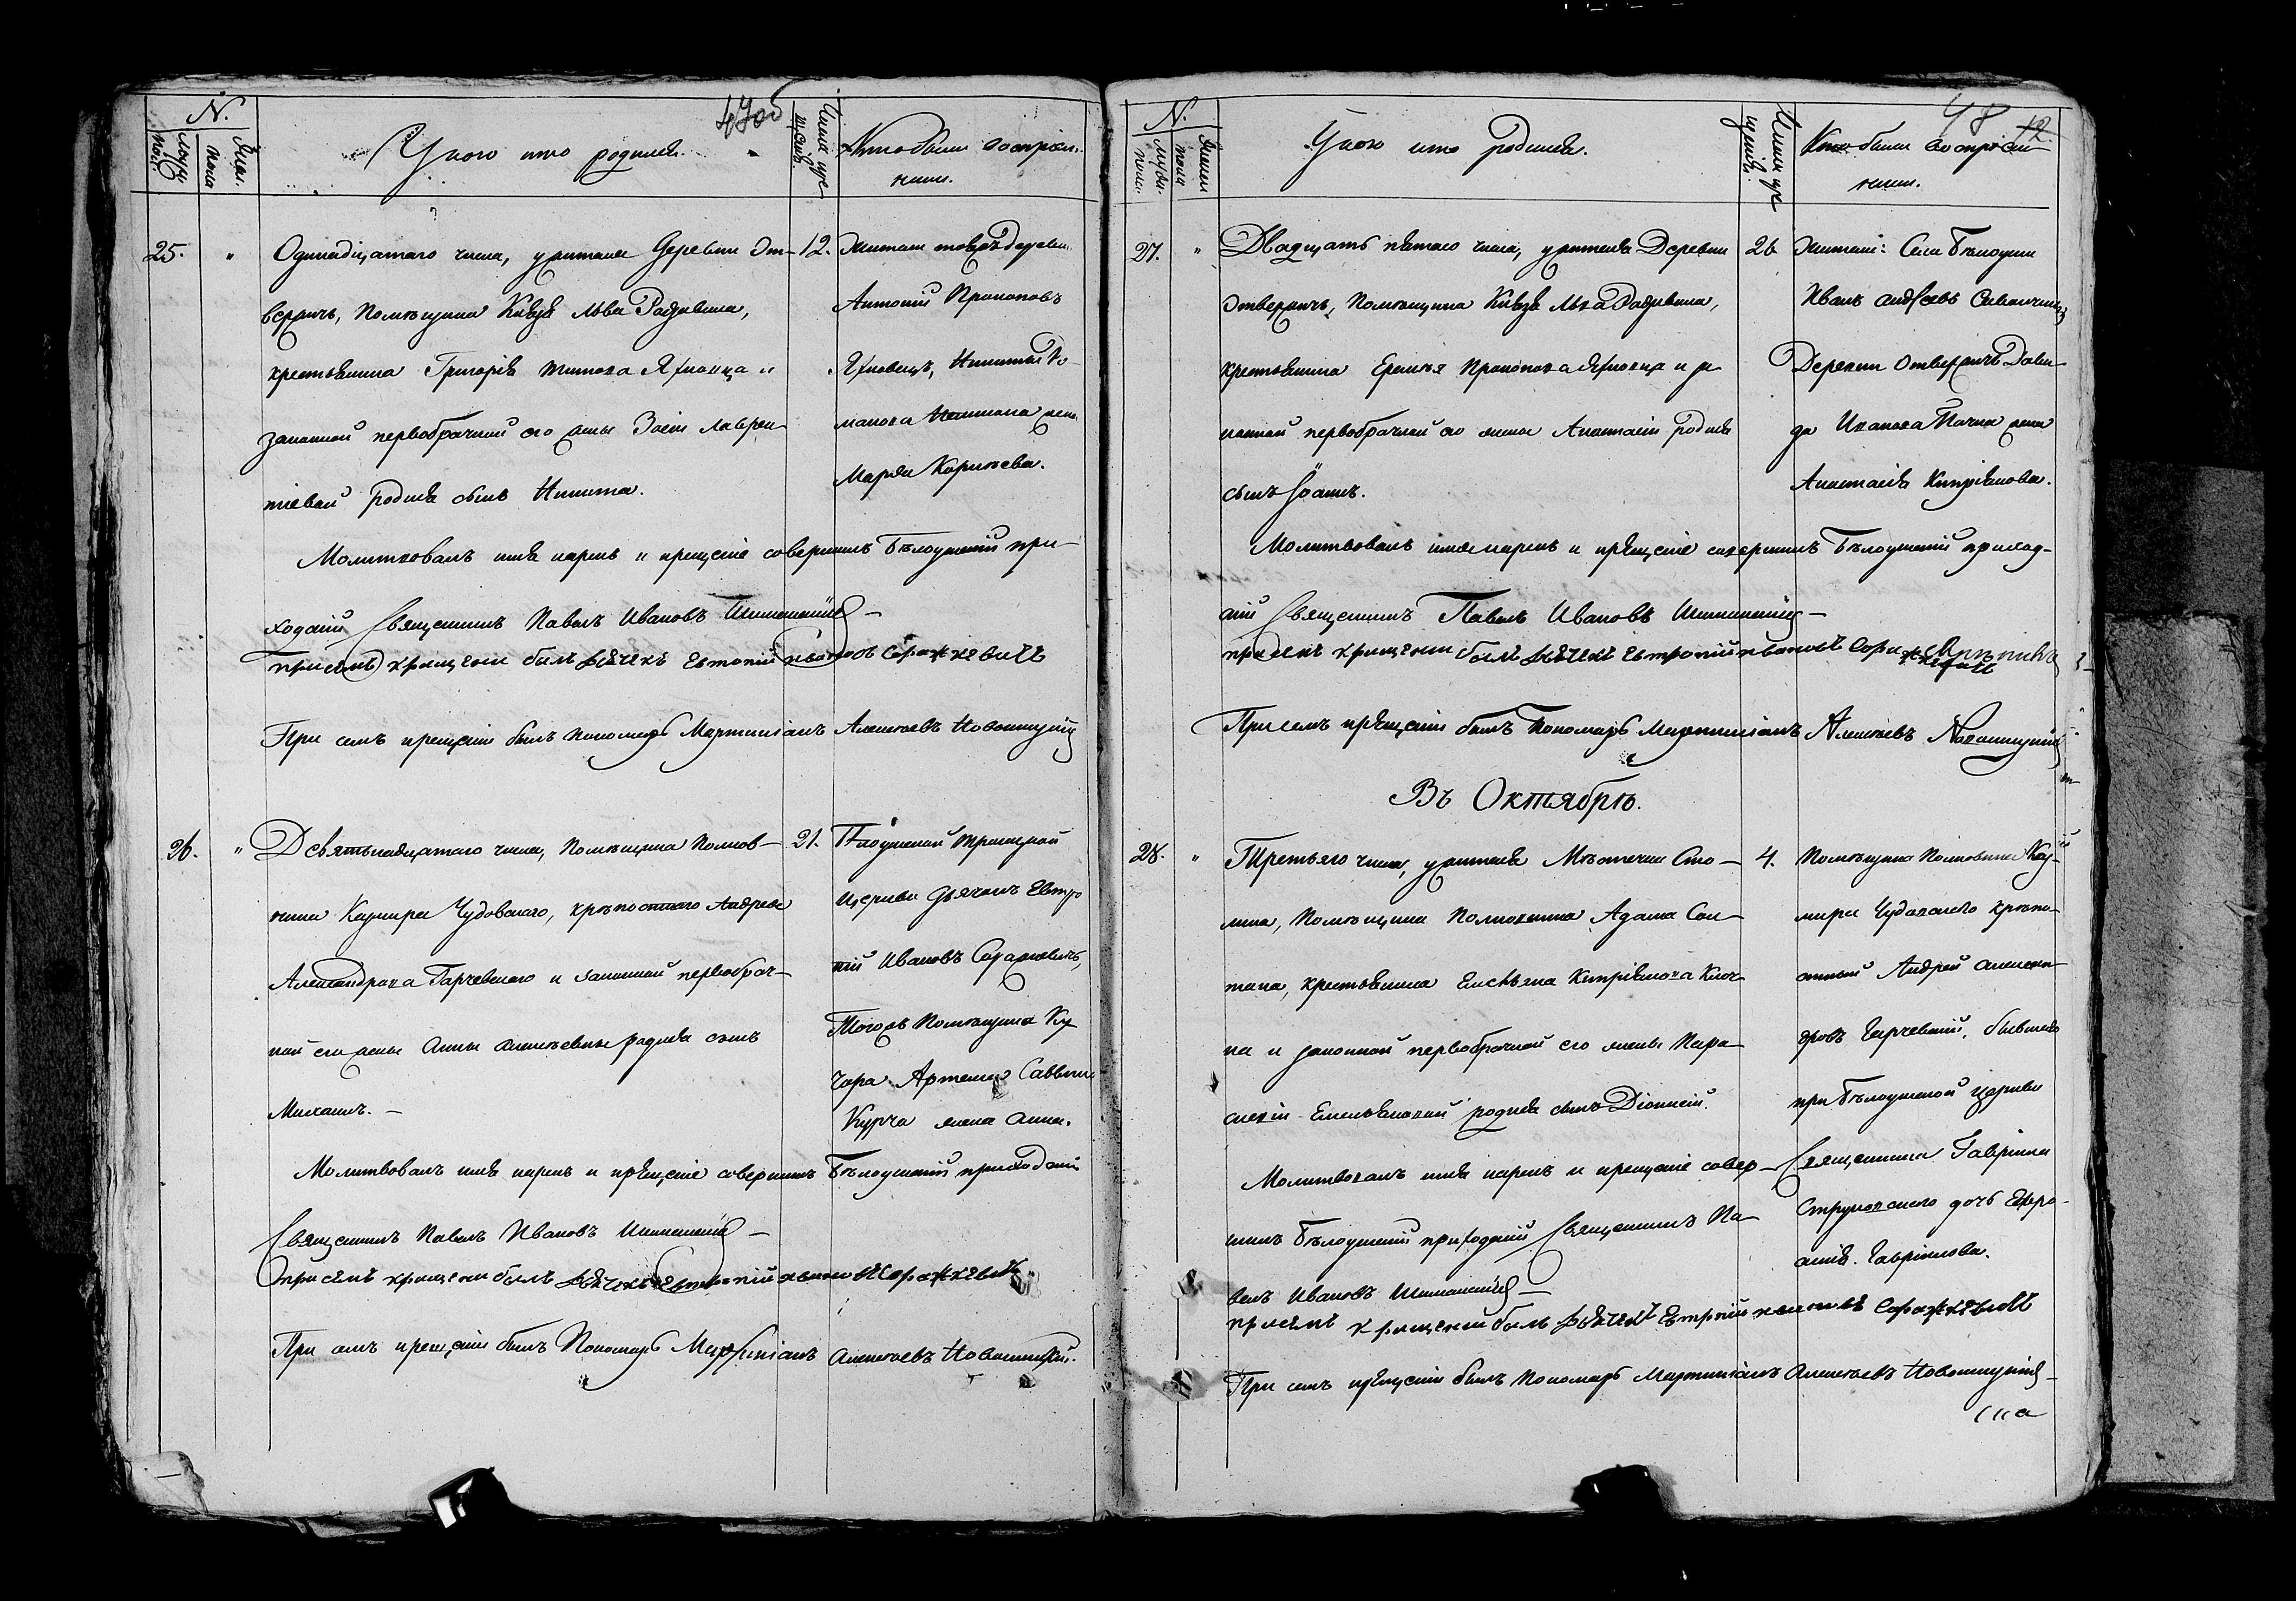 47об
N.
Муж. пола
Жен.
У кого кто родился.
Числа кре щенія.
Кто были воспріем-
ники.
25. " Одинадцатаго числа, у жителя Деревни От- 12.
вержичъ, Помѣщика Князя Льва Радзивила,
крестьянина Григорія Титова Яхновца и
законной первобрачной его жены Зосіи Лаврен
тіевой родился сынъ Никита.
Жители
Антоній Прокоповъ
Яхновецъ, Никиты Ро
манова жена
Марія Корнѣева.
Молитвовалъ имя нарекъ и крещеніе совершилъ Бѣлоушскій при-
ходскій Священникъ Павелъ Ивановъ
присемъ крищении былъ дьячекъ Евтропий Ивановъ Соражкевичъ
При семъ крещеніи былъ Пономарь Мартиніанъ Алексѣевъ Новоминскій
26. " Девятьнадцатаго числа, Помѣщика Полков- 21.
ника Казимира Чудовскаго, крѣпостнаго Андрея
Александрова Гарчевскаго и законной первобрач-
ной его жены Анны Алексѣевны родился сынъ
Михаилъ. -
Бѣлоушской Троицкой
Церкви Дьячекъ Евтро
пій Ивановъ Соражкевичъ,
Тогожъ Помѣщика Ку
чора Артема Саввина
Курча жена Анна.
Молитвовалъ имя нарекъ и крещеніе совершилъ Бѣлоушскій приходскій
Священникъ Павелъ Ивановъ
присемъ крищении былъ дьячекъ Евтропий Ивановъ Соражкевичъ
При семъ крещеніи былъ Пономарь Мартиніанъ Алексѣевъ Новоминскій.
48
N.
Муж. пола.
Женск пола
У кого кто родился.
Числа кре щенія.
Кто были воспріем
ники.
27. " Двадцать пятаго числа, у жителя Деревни 26
Отвержичъ, Помѣщика Князя Льва Радзивила,
крестьянина Еремѣя Прокопова Яхновца и за
конной первобрачной его жены Анастасіи родился
сынъ Іоаннъ.
Жители: Села Бѣлоуши
Иванъ
Деревни Отвержичъ Дави
да Иванова жена
Анастасія Кипріянова.
Молитвовалъ имя нарекъ и крещеніе совершилъ Бѣлоушскій приход-
скій Священникъ Павелъ Ивановъ
присемъ крищении былъ дьячекъ Евтропий Ивановъ Соражкевичъ
При семъ крещеніи былъ Пономарь Мартиніанъ Алексѣевъ Новоминскій
Въ Октябрѣ.
28. " Третьяго числа, у жителя Мѣстечка Сто- 4.
лина, Помѣщика Полковника Адама Сол-
тана, крестьянина Емельяна Кипріянова
на и законной первобрачной его жены Пара
скевіи Емельяновой родился сынъ Діонисій.
Помѣщика Полковника Кази-
мира Чудовскаго крѣпо-
стный Андрей Алексан
дровъ Гарчевскій, бывшаго
при Бѣлоушской Церкви
Священника Гавріила
Струковскаго дочь Ефро-
синія Гавріилова.
Молитвовалъ имя нарекъ и крещеніе совер-
шилъ Бѣлоушскій приходскій Священникъ Па
велъ Ивановъ
присемъ крищении былъ дьячекъ Евтропий Ивановъ Соражкевичъ
При семъ крещеніи былъ Пономарь Мартиніанъ Алексѣевъ Новоминскій